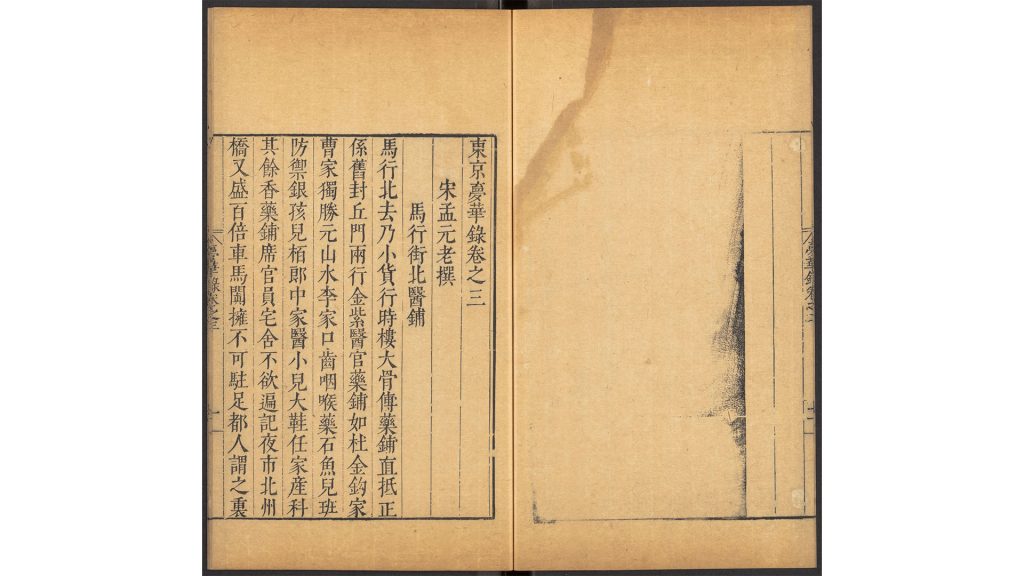 東京夢華錄卷之三
宋孟元老撰
馬行街北醫鋪
馬行北去乃小貨行時樓大骨傳藥鋪直抵正
係舊封丘門兩行金紫醫官藥鋪如杜金鈎家
曹家獨勝元山水李家口齒咽喉藥石魚兒班
防禦銀孩兒栢郎中家醫小兒大鞋任家産科
其餘香藥鋪席官員宅舍不欲遍記夜市北州
橋又盛百倍車馬闐擁不可駐足都人謂之裏
夢華錄卷之三